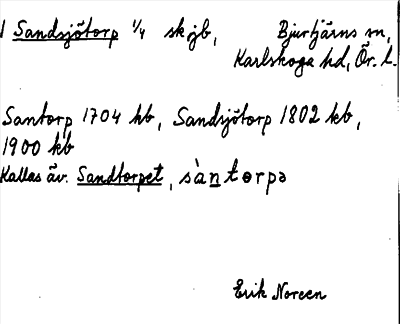 1 Sandsjötorp 1/4 skjb, Bjurtjärns sn,
Karlskoga hd, Ör. l.
Santorp 1704 kb, Sandsjötorp 1802 kb,
1900 kb
Kallas äv. Sandtorpet, sàntorpə
Erik Noreen